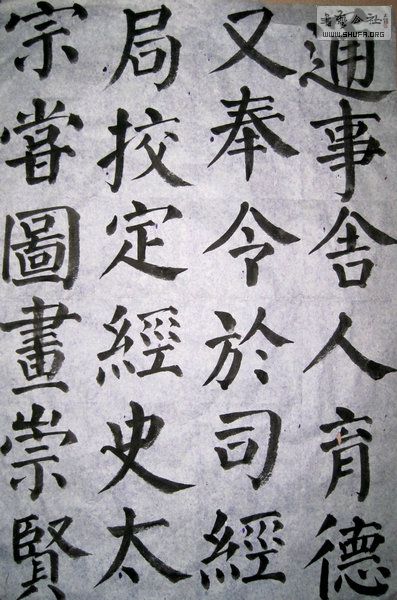 通事舍人育德
又奉令於司經
局挍定經史太
宗甞圖畫崇賢
WWW.SHUFA.ORG